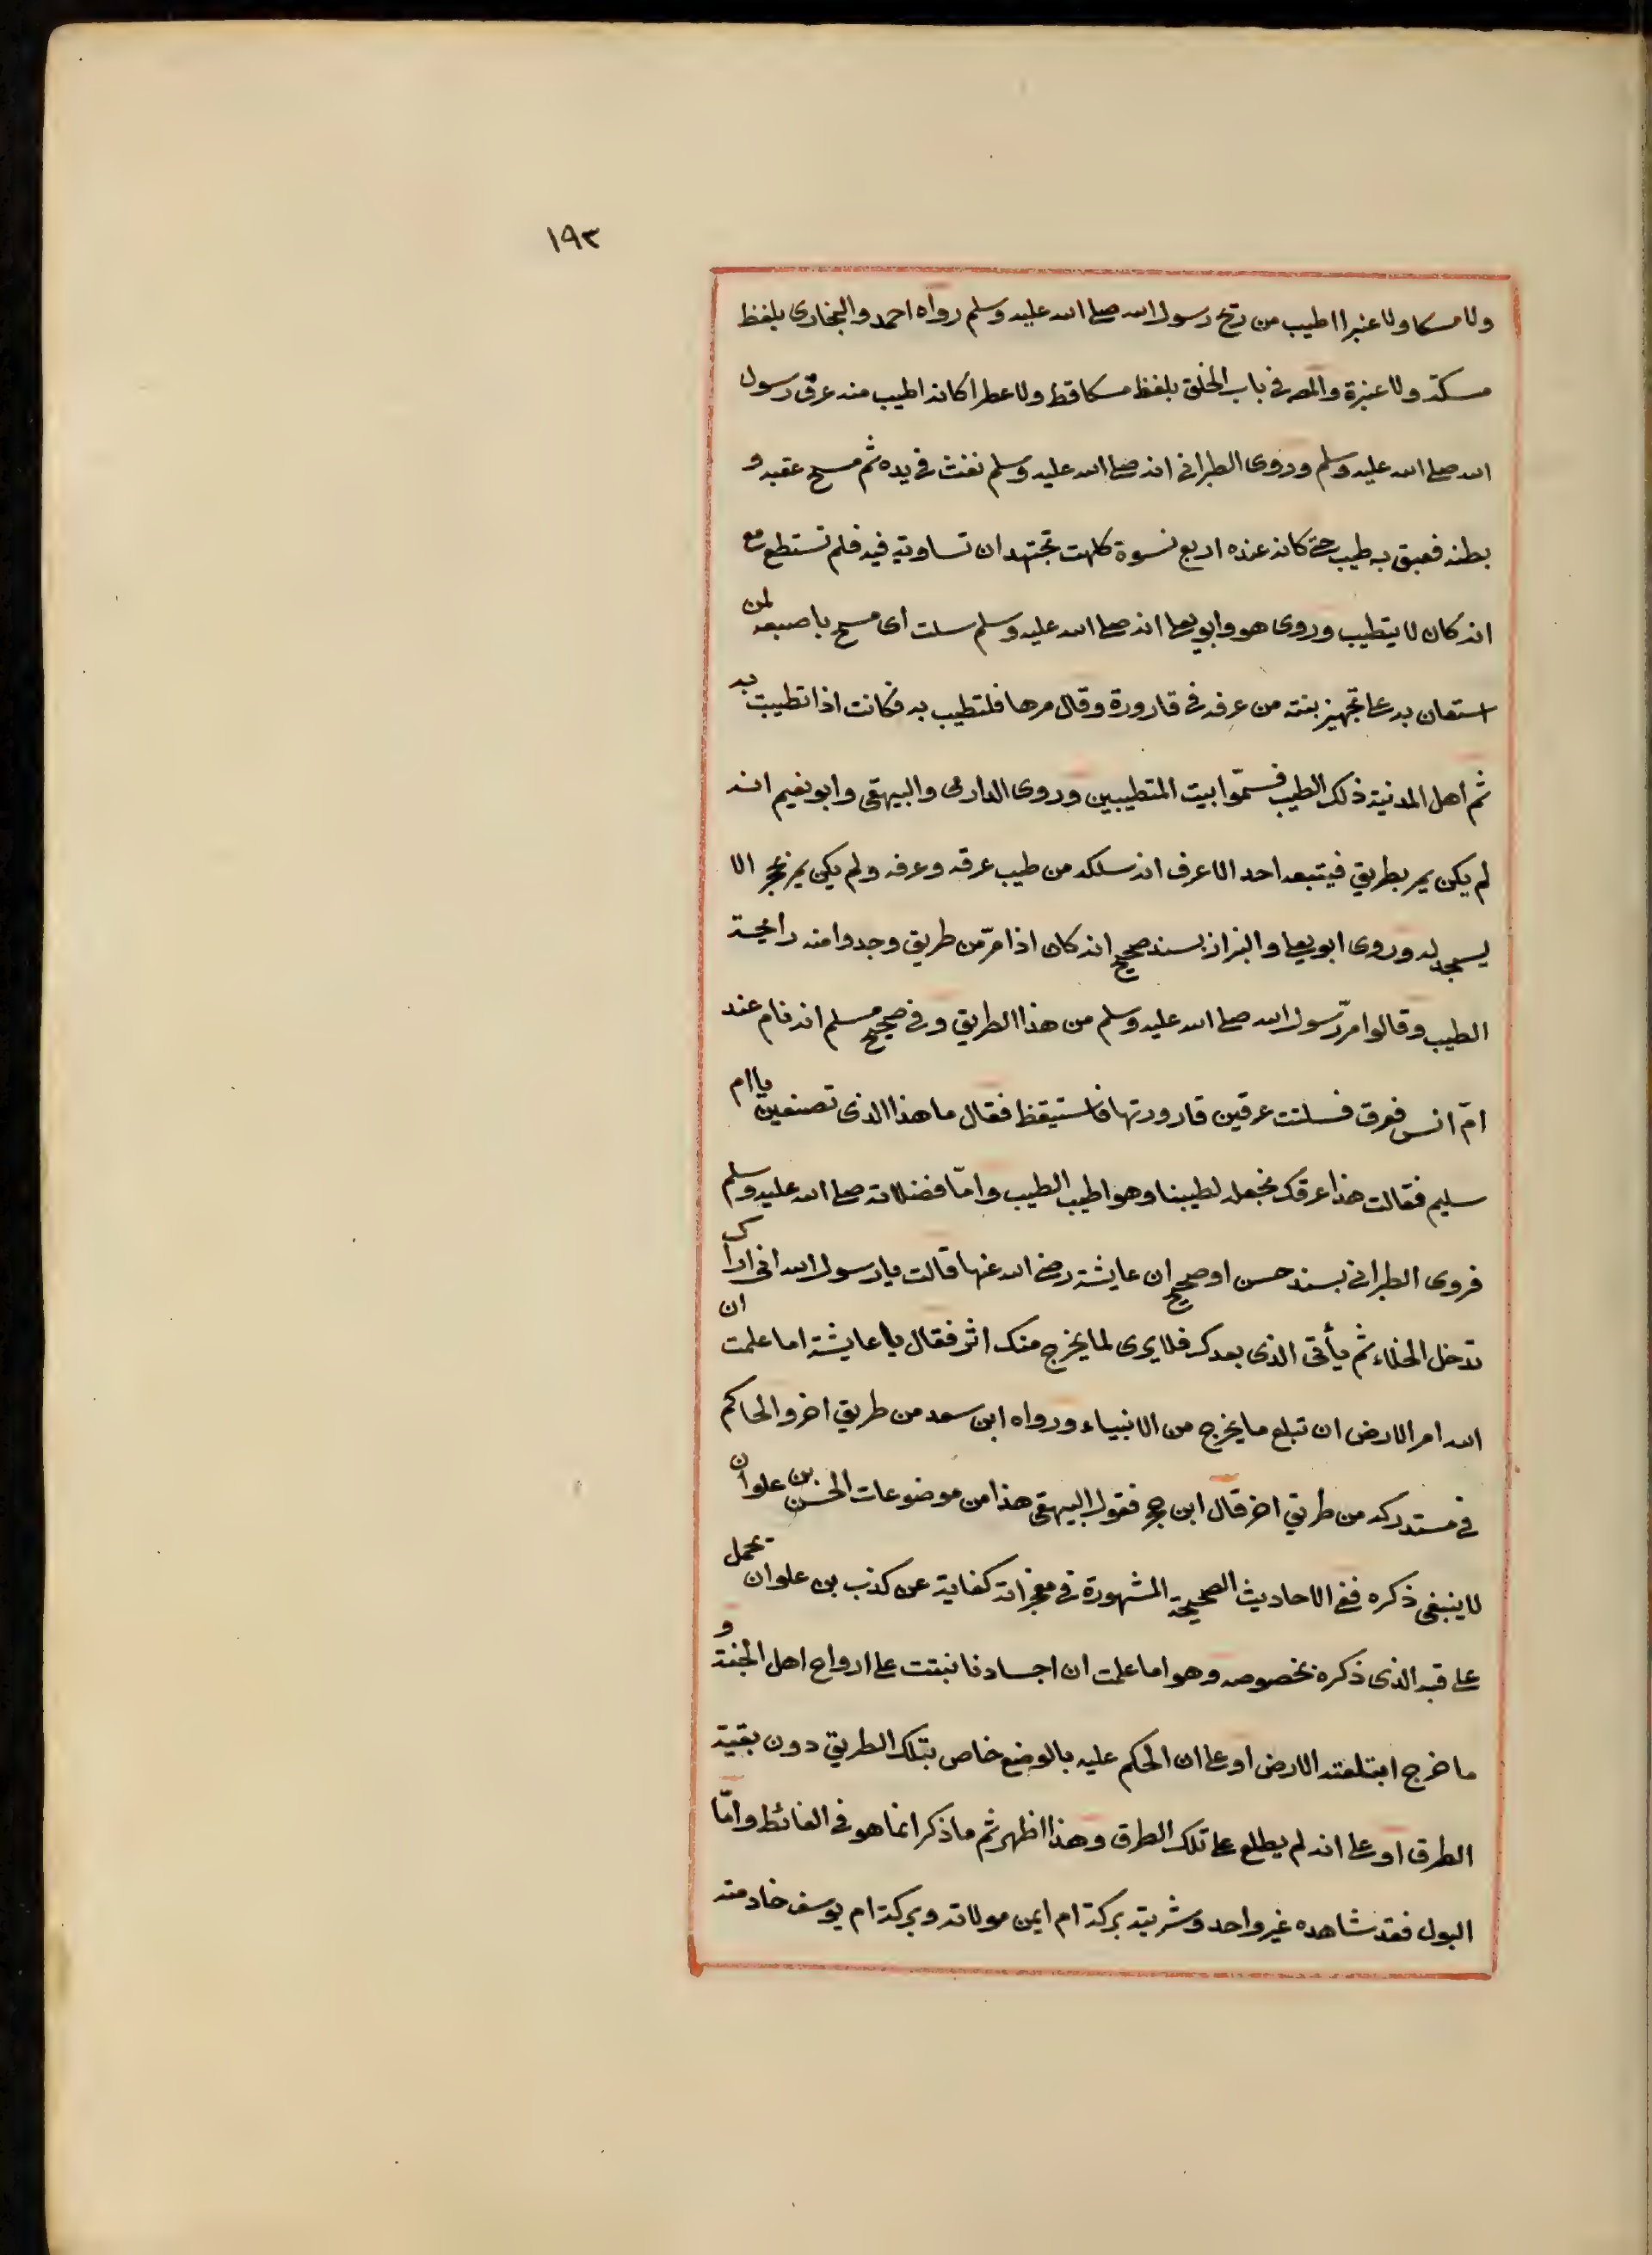 ١٩٣
ولا مسكا ولا عنبرا اطيب من ريح رسول الله صلى الله عليه وسلم رواه احمد والبخارى بلفظ
مسكة ولا عنبرة والمص فى باب الخلق بلفظ مسكا قط ولا عطرا كان اطيب منه عرق رسول
الله صلى الله عليه وسلم وروى الطبرانى انه صلى الله عليه وسلم نفث فى يده ثم مسح عقبه و
بطنه فعبق به طيب حتى كان عنده اربع نسوة كلهن تجتهد ان تساويه فيه فلم تستطع مع
انه كان لا يتطيب وروى هو وابو يعلى انه صلى الله عليه وسلم سلت اى مسح باصبعه لمن
استعان به على تجهيز بنته من عرقه فى قارورة وقال مرها فلتطيب به فكانت اذا تطيبت به
شم اهل المدينة ذلك الطيب فسمّوا بيت المتطيبين وروى الدارمى والبيهقى وابو نعيم انه
لم يكن يمر بطريق فيتبعه احد الا عرف انه سلكه من طيب عرقه وعرفه ولم يكن يمر بحجر الا
يسجد له وروى ابو يعلى والبزاز بسند صحيح انه كان اذا مرّ من طريق وجدوا منه رايحة
الطيب وقالوا مرّ رسول الله صلى الله عليه وسلم من هذا الطريق وفى صحيح مسلم انه نام عند
امّ انس فعرق فسلتت عرقه فى قارورتها فاستيقظ فقال ما هذا الذى تصنعين يا ام
سليم فقالت هذا عرقك نجعله لطيبنا وهو اطيب الطيب وامّا فضلاته صلى الله عليه وسلم
فروى الطبرانى بسند حسن او صحيح ان عايشة رضى الله عنها قالت يا رسول الله انى اراك
تدخل الخلاء ثم يأتى الذى بعدك فلا يرى لما يخرج منك اثر فقال يا عايشة اما علمت ان
الله امر الارض ان تبلع ما يخرج من الانبياء ورواه ابن سعد من طريق اخر والحاكم
فى مستدركه من طريق اخر قال ابن حجر فقول البيهقى هذا من موضوعات الحسن بن علوان
لا ينبغى ذكره ففى الاحاديث الصحيحة المشهورة فى معجزاته كفاية عن كذب بن علوان يحمل
على قبه الذى ذكره بخصوصه وهو اما علمت ان اجسادنا نبتت على ارواح اهل الجنة و
ما خرج ابتلعته الارض او على ان الحكم عليه بالوضع خاص بتلك الطريق دون بقية
الطرق او على انه لم يطلع على تلك الطرق وهذا اظهر ثم ما ذكر انما هو فى الغائط وامّا
البول فقد شاهده غير واحد وشربته بركة ام ايمن مولاته وبركة ام يوسف خادمته